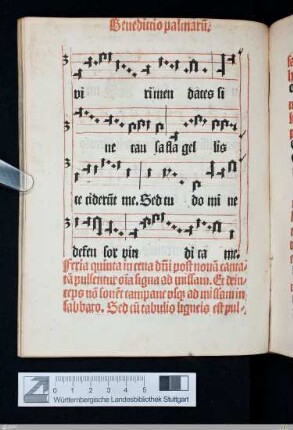 Benedictio palmarū.
vi rimen dates si
ne cau sa fla gel lis
te ciderūt me. Sed tu do mi ne
defen sor vin di ca me.
Feria quinta in cena dñi post nonā canta-
tā pulsentur oīa signa ad missam. Et dein-
ceps nō sonēt campane vsq; ad missam in
sabbato. Sed cū tabulis ligneis est pul-
0 1 2 3 4 5
Württembergische Landesbibliothek Stuttgart